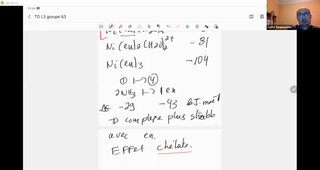 TD L3 groupe A3
Ni(en)2(H2O)2 2+ - 81
Ni(en)3 -104
① ↦ ④
2NH3 ↦ 1 en
-29 -43 kJ.mol-1
→ complexe plus stable
avec en.
EFFET chélate.